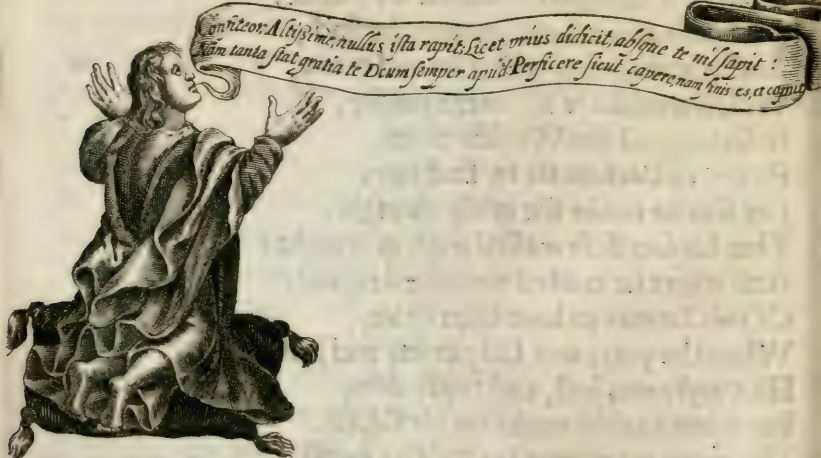 Confiteor Altissime, nullus ista rapit: Licet prius didicit, absque te nil sapit:
Nam tanta stat gratia te Deum semper apud: Perficere sicut capere, nam finis es, et caput